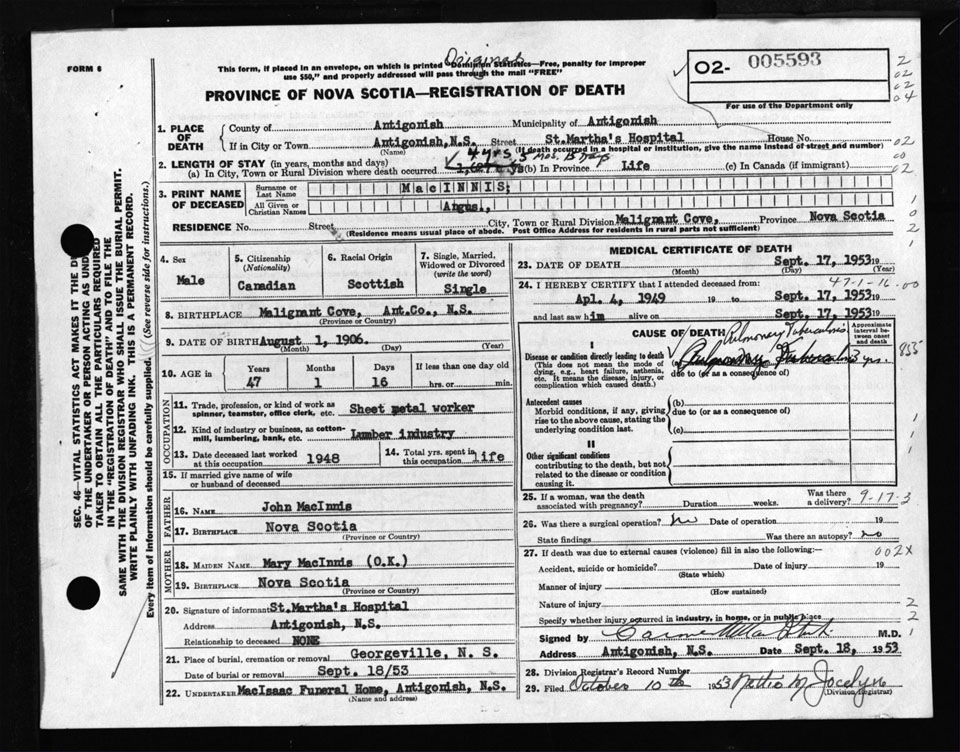 Original
FORM 6
This form, if placed in an envelope, on which is printed "Dominion Statistics—Free, penalty for improper
use $50," and properly addressed will pass through the mail "FREE"
O2- 005593
For use of the Department only
2
02
02
04
PROVINCE OF NOVA SCOTIA—REGISTRATION OF DEATH
1. PLACE OF DEATH
County of Antigonish Municipality of Antigonish
If in City or Town Antigonish, N.S. Street St. Martha's Hospital House No.
(Name) (If death occurred in a hospital or institution, give the name instead of street and number)
02
00
02
2. LENGTH OF STAY (in years, months and days) 4 yrs. 5 mos. 13 days
(a) In City, Town or Rural Division where death occurred (b) In Province Life (c) In Canada (if immigrant)
3. PRINT NAME OF DECEASED
Surname or Last Name MacINNIS;
All Given or Christian Names Angus.,
RESIDENCE No. Street City, Town or Rural Division Malignant Cove, Province Nova Scotia
(Residence means usual place of abode. Post Office Address for residents in rural parts not sufficient)
1
0
2
1
4. Sex Male
5. Citizenship (Nationality) Canadian
6. Racial Origin Scottish
7. Single, Married, Widowed or Divorced (write the word) Single
8. BIRTHPLACE Malignant Cove, Ant.Co., N.S.
(Province or Country)
9. DATE OF BIRTH August 1, 1906.
(Month) (Day) (Year)
10. AGE in Years 47 Months 1 Days 16 If less than one day old hrs. or min.
OCCUPATION
11. Trade, profession, or kind of work as spinner, teamster, office clerk, etc. Sheet metal worker
12. Kind of industry or business, as cotton-mill, lumbering, bank, etc. Lumber industry
13. Date deceased last worked at this occupation 1948
14. Total yrs. spent in this occupation life
15. If married give name of wife or husband of deceased
FATHER
16. NAME John MacInnis
17. BIRTHPLACE Nova Scotia
(Province or Country)
MOTHER
18. MAIDEN NAME Mary MacInnis (O.K.)
19. BIRTHPLACE Nova Scotia
(Province or Country)
20. Signature of informant St.Martha's Hospital
Address Antigonish, N.S.
Relationship to deceased NONE
21. Place of burial, cremation or removal Georgeville, N. S.
Date of burial or removal Sept. 18/53
22. UNDERTAKER MacIsaac Funeral Home, Antigonish, N.S.
(Name and address)
MEDICAL CERTIFICATE OF DEATH
23. DATE OF DEATH Sept. 17, 1953 19
(Month) (Day) (Year)
47-1-16 .00
24. I HEREBY CERTIFY that I attended deceased from:
Apl. 4, 1949 19 to Sept. 17, 1953 19
and last saw him alive on Sept. 17, 1953 19
CAUSE OF DEATH
Approximate interval between onset and death
Pulmonary Tuberculosis
I
Disease or condition directly leading to death
(This does not mean the mode of dying, e.g., heart failure, asthenia, etc. It means the disease, injury, or complication which caused death.)
Pulmonary Tuberculosis yrs.
due to (or as a consequence of)
Antecedent causes
Morbid conditions, if any, giving rise to the above cause, stating the underlying condition last.
(b)
due to (or as a consequence of)
(c)
II
Other significant conditions
contributing to the death, but not related to the disease or condition causing it.
1
1
1
25. If a woman, was the death associated with pregnancy? Duration weeks. Was there a delivery?
9-17-3
26. Was there a surgical operation? no Date of operation 19
State findings Was there an autopsy? no
27. If death was due to external causes (violence) fill in also the following:—
002X
Accident, suicide or homicide? Date of injury 19
(State which)
Manner of injury
(How sustained)
Nature of injury
2
Specify whether injury occurred in industry, in home, or in public place
2
Signed by M.D.
1
Address Antigonish, N.S. Date Sept. 18, 1953
28. Division Registrar's Record Number
29. Filed October 10th 1953
(Division Registrar)
SEC. 46—VITAL STATISTICS ACT MAKES IT THE DU
OF THE UNDERTAKER OR PERSON ACTING AS UND
TAKER TO OBTAIN ALL THE PARTICULARS REQUIRED
IN THE "REGISTRATION OF DEATH" AND TO FILE THE
SAME WITH THE DIVISION REGISTRAR WHO SHALL ISSUE THE BURIAL PERMIT.
WRITE PLAINLY WITH UNFADING INK. THIS IS A PERMANENT RECORD.
Every item of information should be carefully supplied. (See reverse side for instructions.)